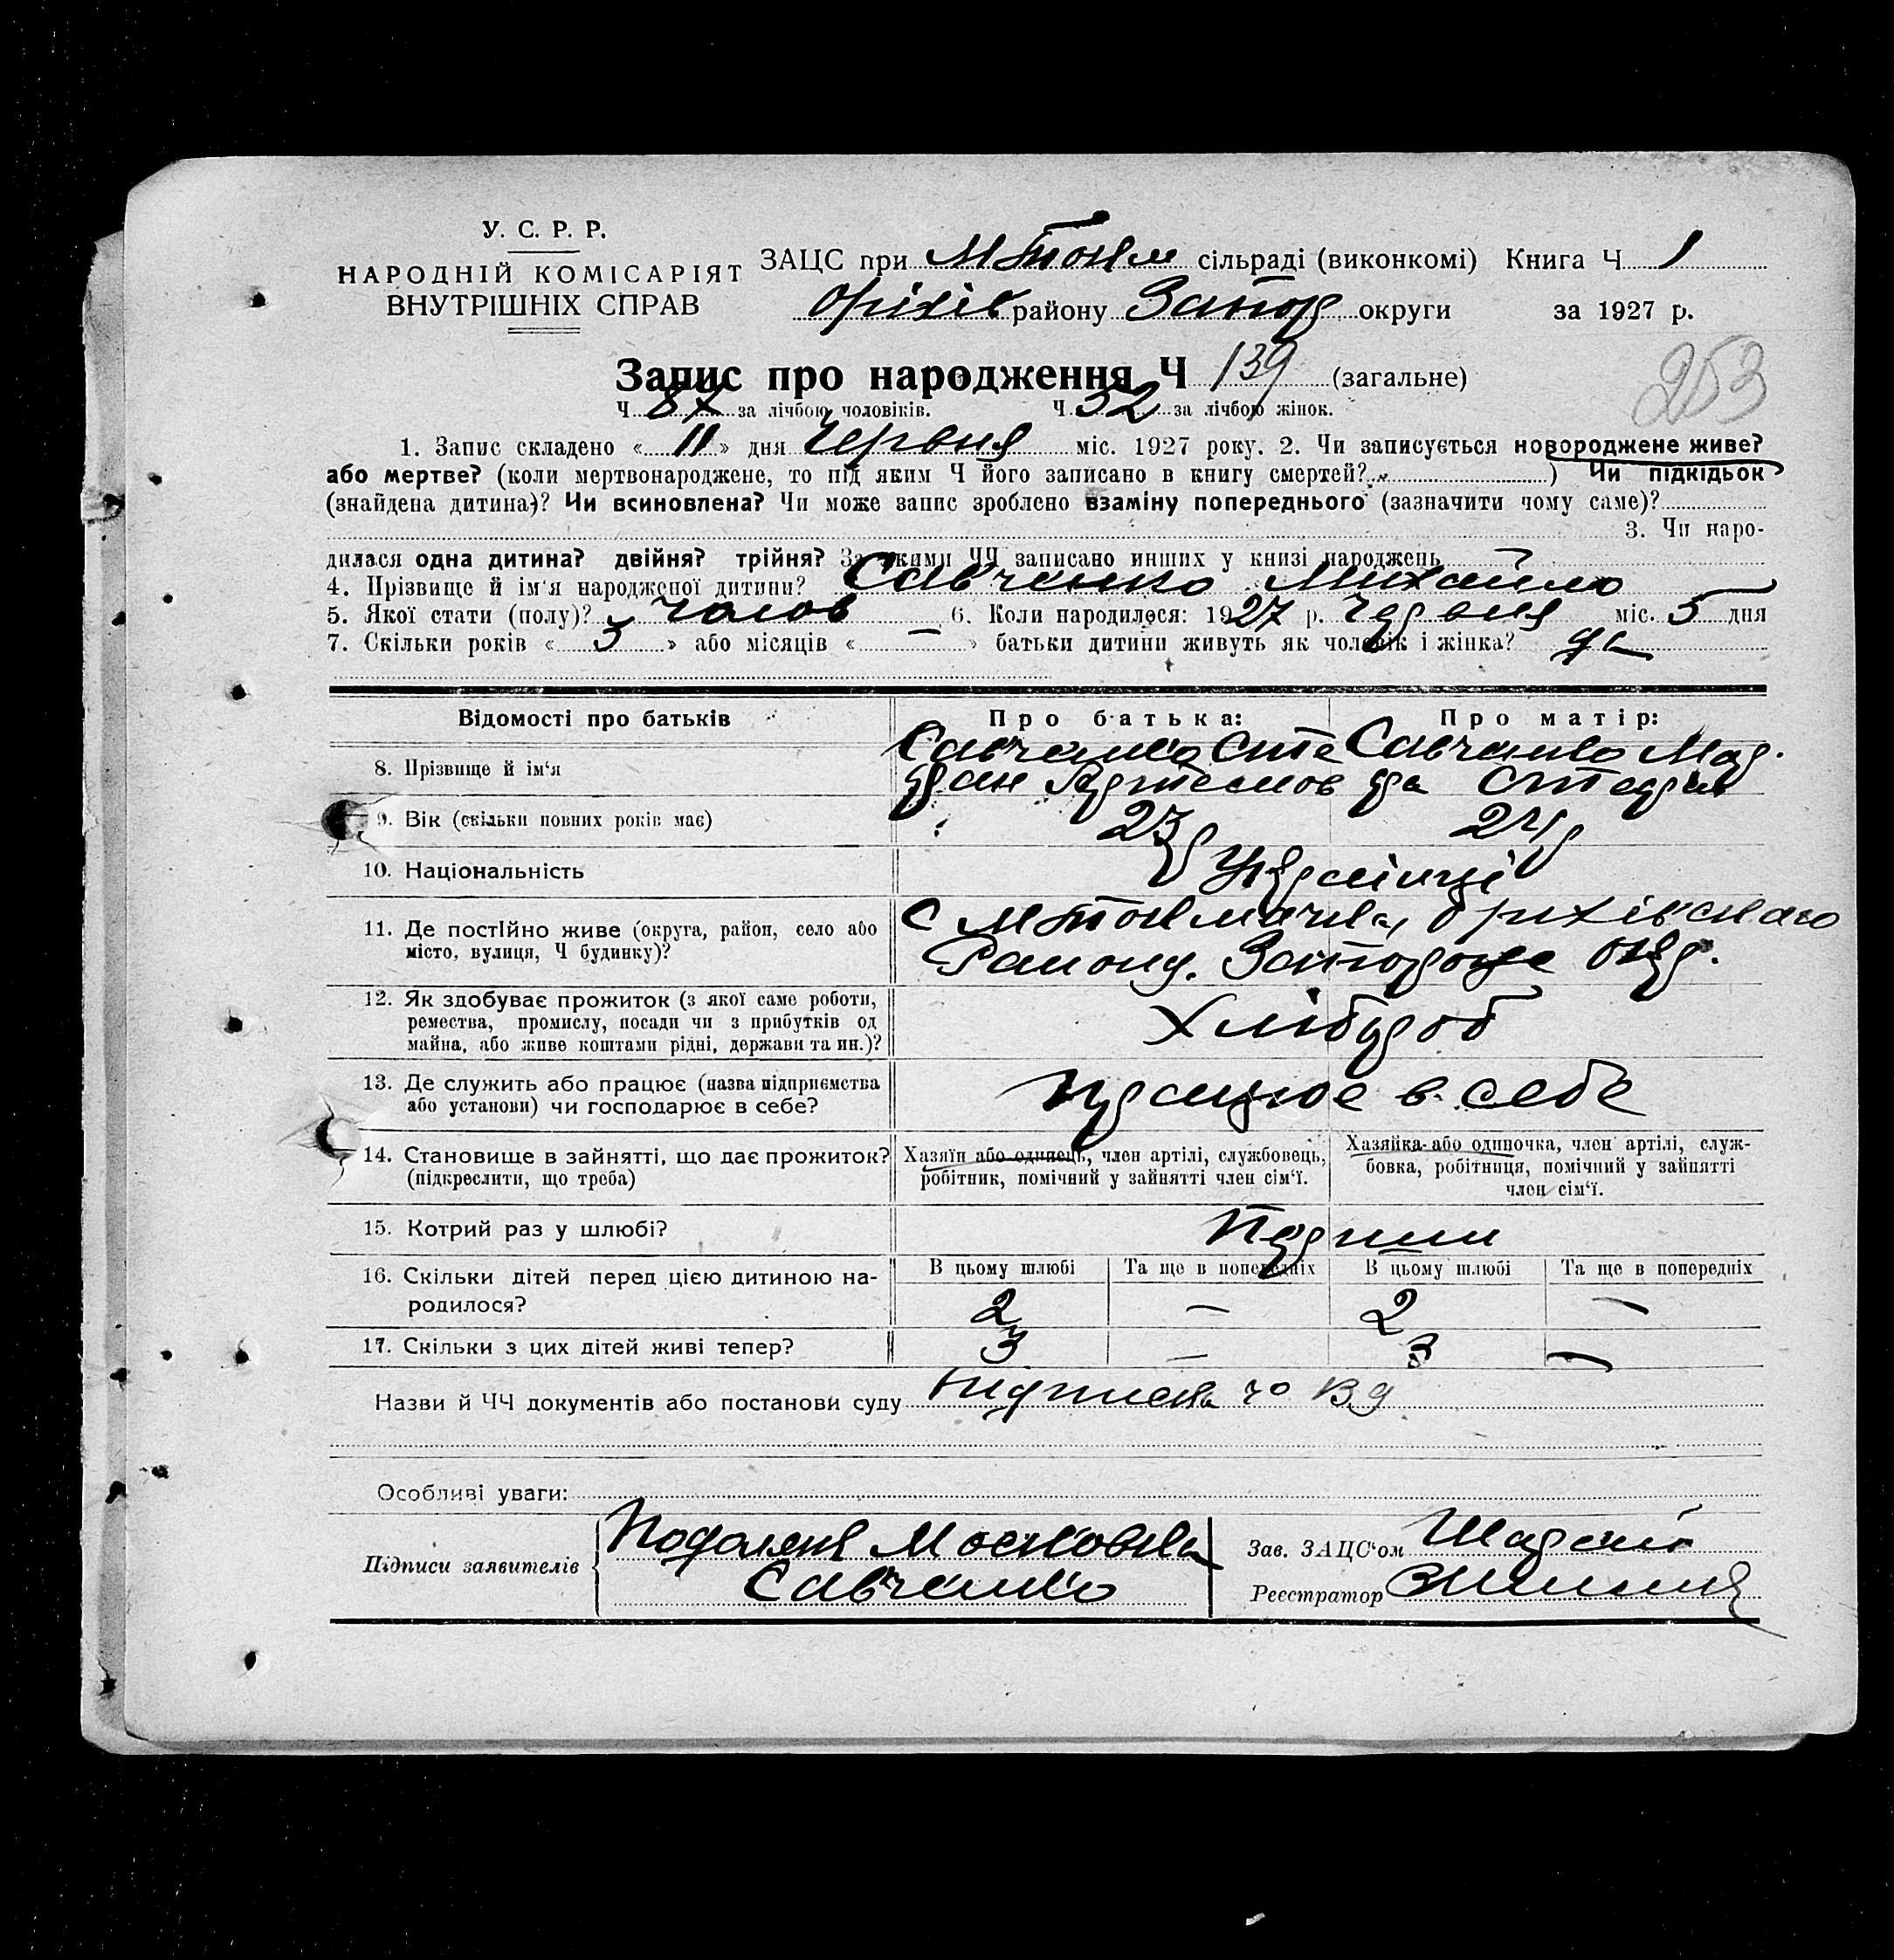 У. С. Р. Р.
НАРОДНІЙ КОМІСАРІЯТ
ВНУТРІШНІХ СПРАВ
ЗАЦС при М Токм сільраді (виконкомі) Книга Ч 1
Оріхів району Запор округи за 1927 р.
253
Запис про народження Ч 139 (загальне)
Ч 87 за лічбою чоловіків. Ч 52 за лічбою жінок.
1. Запис складено « 11 » дня Червня міс. 1927 року. 2. Чи записується новороджене живе?
або мертве? (коли мертвонароджене, то під яким Ч його записано в книгу смертей? ) Чи підкідьок
(знайдена дитина)? Чи всиновлена? Чи може запис зроблено взаміну попереднього (зазначити чому саме)?
3. Чи наро-
дилася одна дитина? двійня? трійня? За якими ЧЧ записано инших у книзі народжень
4. Прізвище й ім'я народженої дитини? Савченко Михайло
5. Якої стати (полу)? чолов 6. Коли народилося: 1927 р. Червня міс. 5 дня
7. Скільки років « 5 » або місяців « — » батьки дитини живуть як чоловік і жінка? да
Відомості про батьків Про батька: Про матір:
8. Прізвище й ім'я
Савченко Сте Савченко Мар.
фан Артемов фа Стефан
9. Вік (скільки повних років має) 23р 24р
10. Національність Українці
11. Де постійно живе (округа, район, село або
місто, вулиця, Ч будинку)?
с М Токмачка, Оріхівського
Району. Запороже окр.
12. Як здобуває прожиток (з якої саме роботи,
ремества, промислу, посади чи з прибутків од
майна, або живе коштами рідні, держави та ин.)?
Хлібороб
13. Де служить або працює (назва підприємства
або установи) чи господарює в себе?
працює в себе
14. Становище в зайнятті, що дає прожиток?
(підкреслити, що треба)
Хазяїн або одинець, член артілі, службовець,
робітник, помічний у зайнятті член сім'ї.
Хазяйка або одиночка, член артілі, служ-
бовка, робітниця, помічний у зайнятті
член сім'ї.
15. Котрий раз у шлюбі? Перший
16. Скільки дітей перед цією дитиною на-
родилося?
В цьому шлюбі Та ще в попередніх В цьому шлюбі Та ще в попередніх
2 — 2 —
17. Скільки з цих дітей живі тепер? 3 — 3 —
Назви й ЧЧ документів або постанови суду Підписка
Особливі уваги:
Підписи заявителів
Подолян Московка
Савченко
Зав. ЗАЦС'ом
Реєстратор